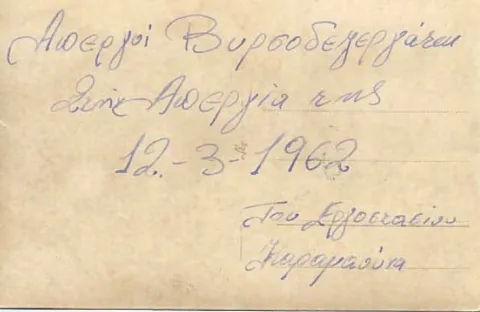 Απεργοί Βυρσοδεψεργάται
Στην Απεργία της
12-3-1962
Του Εργοστασίου
Καραμανύκα